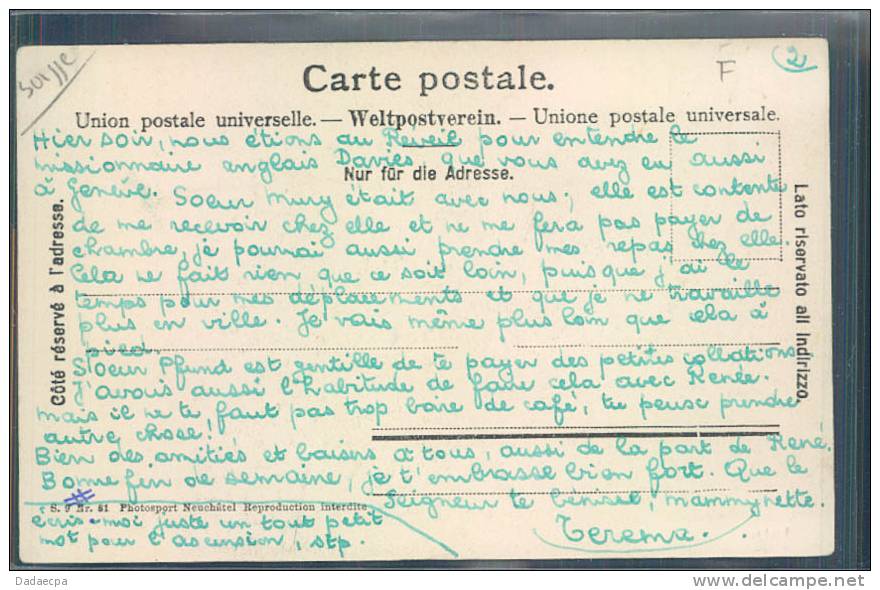 Suisse
F
2
Carte postale.
Union postale universelle. — Weltpostverein. — Unione postale universale.
Hier soir, nous étions au Réveil pour entendre le
missionnaire anglais Davies que vous avez eu aussi
Nur für die Adresse.
à Genève. Soeur Mury était avec nous; elle est contente
de me recevoir chez elle et ne me fera pas payer de
chambre, je pourrai aussi prendre mes repas chez elle.
Cela ne fait rien que ce soit loin, puisque j'ai le
temps pour mes déplacements et que je ne travaille
plus en ville. Je vais même plus loin que cela à
pied.
Soeur Pfund est gentille de te payer des petites collations
J'avais aussi l'habitude de faire cela avec Renée.
Mais il ne te faut pas trop boire de café, tu peux prendre
autre chose!
Bien des amitiés et baisers à tous, aussi de la part de René.
Bonne fin de semaine, je t'embrasse bien fort. Que le
Seigneur te bénisse, mammynette.
Terema.
Côté réservé à l'adresse.
Lato riservato all Indirizzo.
S. 9 Nr. 51 Photosport Neuchâtel Reproduction interdite
écris-moi juste un tout petit
mot pour l'ascension, stp.
Dadaecpa
www.delcampe.net